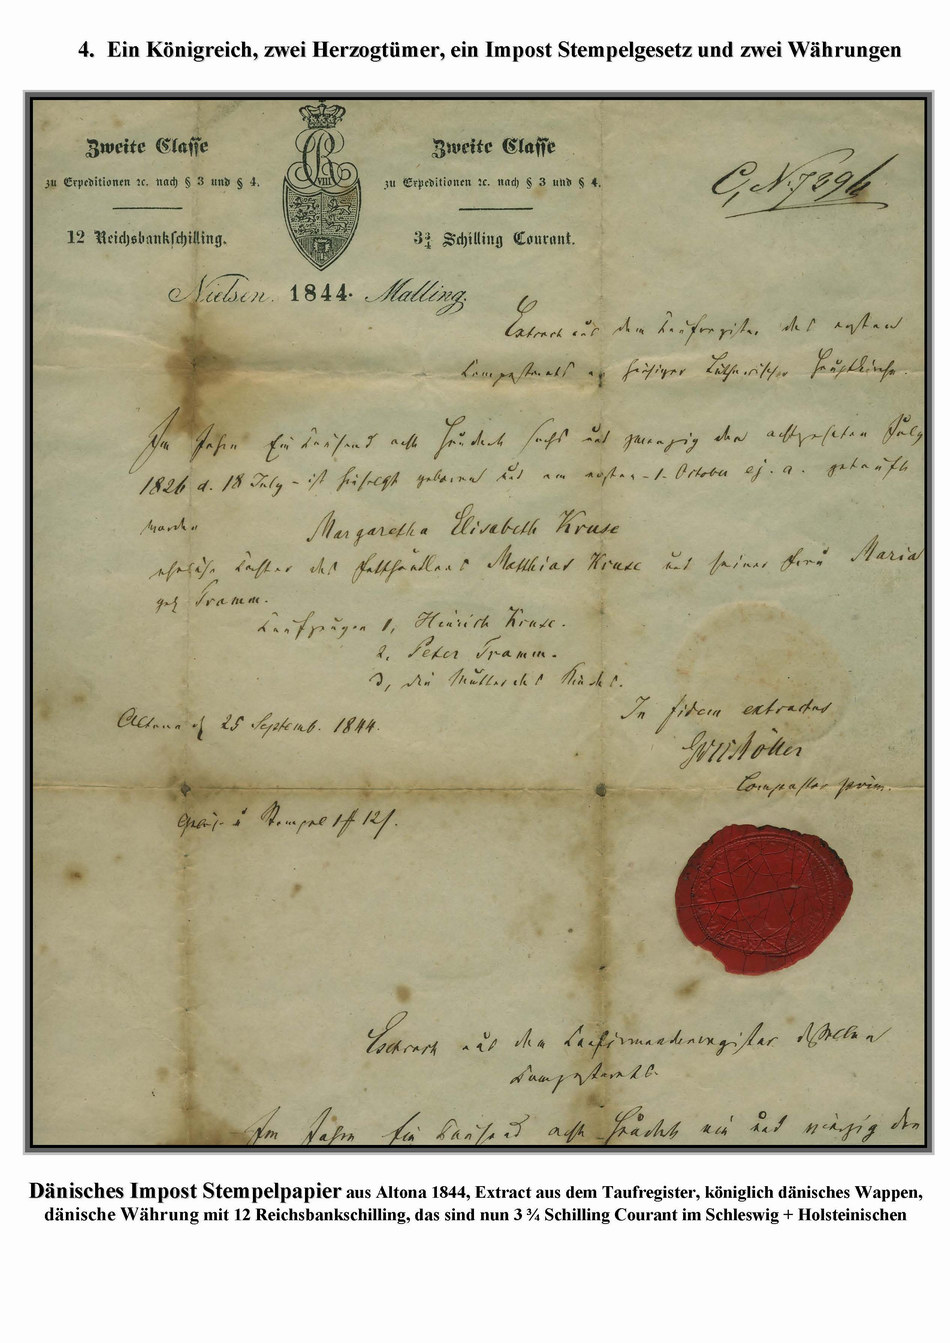 4. Ein Königreich, zwei Herzogtümer, ein Impost Stempelgesetz und zwei Währungen
Zweite Classe
zu Expeditionen ꝛc. nach § 3 und § 4.
12 Reichsbankschilling.
CR VIII
Zweite Classe
zu Expeditionen ꝛc. nach § 3 und § 4.
3¾ Schilling Courant.
Nielsen. 1844. Malling.
Extract aus dem Taufregister des ersten
Compastorats an hiesiger Lutherischer Hauptkirche.
Im Jahre Ein Tausend acht Hundert sechs und zwanzig den achtzehnten July
1826 d. 18 July - ist hieselbst geboren und am ersten - 1. October ej. a. getauft
worden
Margaretha Elisabeth Kruse
eheliche Tochter des Fetthändlers Matthias Kruse und seiner Frau Maria
geb. Tramm.
Taufzeugen 1, Hinrich Kruse.
2, Peter Tramm.
3, die Mutter des Kindes.
Altona d. 25 Septemb. 1844.
In fidem extractus
Compastor prim.
Stempel
Extract aus dem Confirmandenregister desselben
Compastorats.
Im Jahre Ein Tausend acht Hundert ein und vierzig den
Dänisches Impost Stempelpapier aus Altona 1844, Extract aus dem Taufregister, königlich dänisches Wappen,
dänische Währung mit 12 Reichsbankschilling, das sind nun 3 ¾ Schilling Courant im Schleswig + Holsteinischen